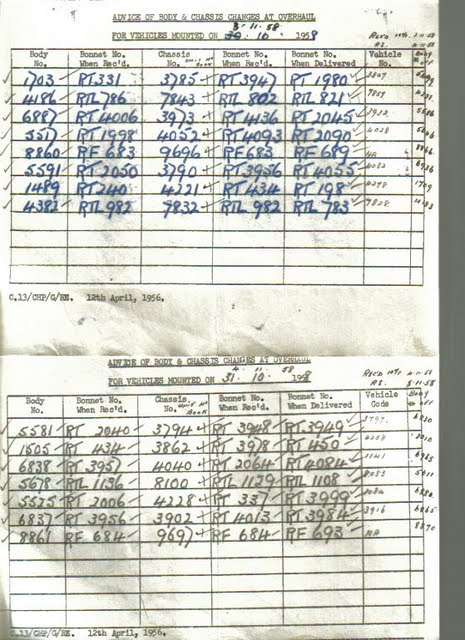 ADVICE OF BODY & CHASSIS CHANGES AT OVERHAUL
3-11-58
FOR VEHICLES MOUNTED ON 10. 1958
Body No. Bonnet No. When Rec'd. Chassis No. Bonnet No. When Rec'd. Bonnet No. When Delivered Vehicle No. Body off
1703 RT 331 3785 RT 3947 RT 1980
4186 RTL 786 7843 RTL 802 RTL 821
6887 RT 4006 3973 RT 4136 RT 2045
5517 RT 1998 4052 RT 4093 RT 2090
8860 RF 683 9696 RF 683 RF 689 NA
5591 RT 2050 3790 RT 3956 RT 4055
1489 RT 240 4221 RT 434 RT 198
4382 RTL 982 7832 RTL 982 RTL 783
C.13/CHP/G/NE. 12th April, 1956.
ADVICE OF BODY & CHASSIS CHANGES AT OVERHAUL
4-11-58
FOR VEHICLES MOUNTED ON 31. 10. 1958
Body No. Bonnet No. When Rec'd. Chassis No. Bonnet No. When Rec'd. Bonnet No. When Delivered Vehicle Code Body off
5581 RT 2040 3794 RT 3948 RT 3949
1505 RT 434 3862 RT 3978 RT 450
6838 RT 3957 4040 RT 2064 RT 4084
5678 RTL 1136 8100 RTL 1129 RTL 1108
5525 RT 2006 4228 RT 337 RT 3999
6837 RT 3956 3902 RT 4013 RT 3984 3916 6865
8861 RF 684 9697 RF 684 RF 693 NA 8870
C.13/CHP/G/NE. 12th April, 1956.